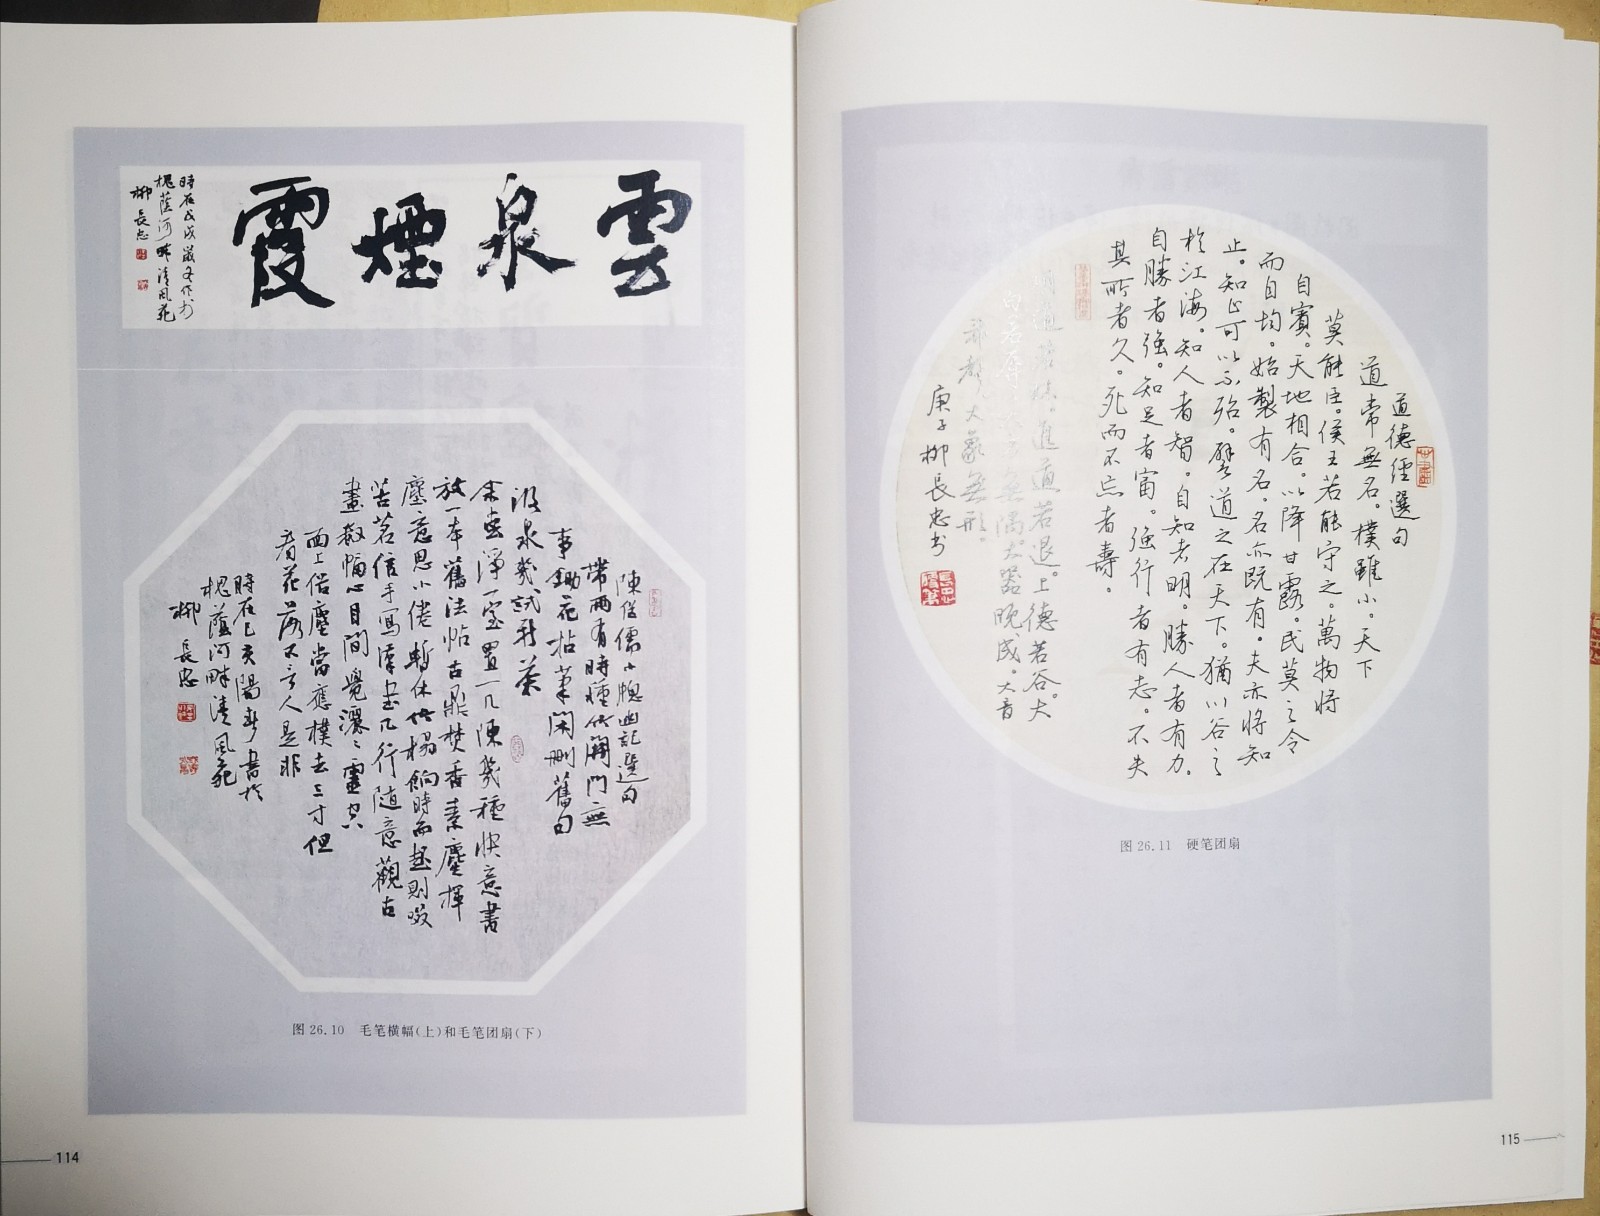 雲泉煙霞
時在戊戌歲冬作於
槐蔭河畔清風苑
柳長忠
陳继儒小牕幽記選句
帶雨有時種竹關門無
事鋤花拈筆閑刪舊句
汲泉幾試新茶
余嘗淨一室置一几陳幾種快意書
放一本舊法帖古鼎焚香素麈揮
塵意思小倦暫休竹榻餉時而起則啜
苦茗信手寫漢書几行隨意觀古
畫數幅心目間覺灑灑靈空
面上俗塵當應樸去三寸但
看花落不言人是非
時在己亥陽春書於
槐蔭河畔清風苑
柳長忠
图 26.10　毛笔横幅(上)和毛笔团扇(下)
114
道德經選句
道常無名。樸雖小。天下
莫能臣。侯王若能守之。萬物將
自賓。天地相合。以降甘露。民莫之令
而自均。始製有名。名亦既有。夫亦將知
止。知止可以不殆。譬道之在天下。猶川谷之
於江海。知人者智。自知者明。勝人者有力。
自勝者強。知足者富。強行者有志。不失
其所者久。死而不忘者壽。
明道若昧。進道若退。上德若谷。大
白若辱 無隅。大器晚成。大音
希聲。大象無形。
庚子柳長忠书
图 26.11　硬笔团扇
115